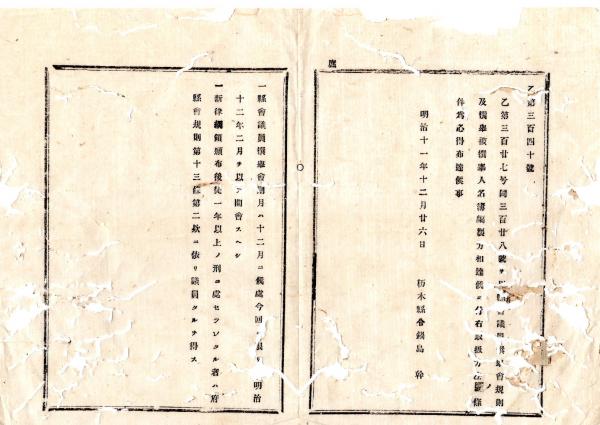 乙第三百四十號
乙第三百廿七号同三百廿八號ヲ以縣會議員撰擧會規則
及撰擧被撰擧人名簿調製方相達候ニ付右取扱方ノ條
件爲心得布達候事
明治十一年十二月廿六日
栃木縣令鍋島 幹
庶
一縣會議員撰擧會期月ハ十二月ニ候處今回ニ限リ明治
十二年二月ヲ以テ開會スヘシ
一新律綱領頒布後徒一年以上ノ刑ニ處セラレタル者ハ府
縣會規則第十三條第二欵ニ依リ議員タルヲ得ス